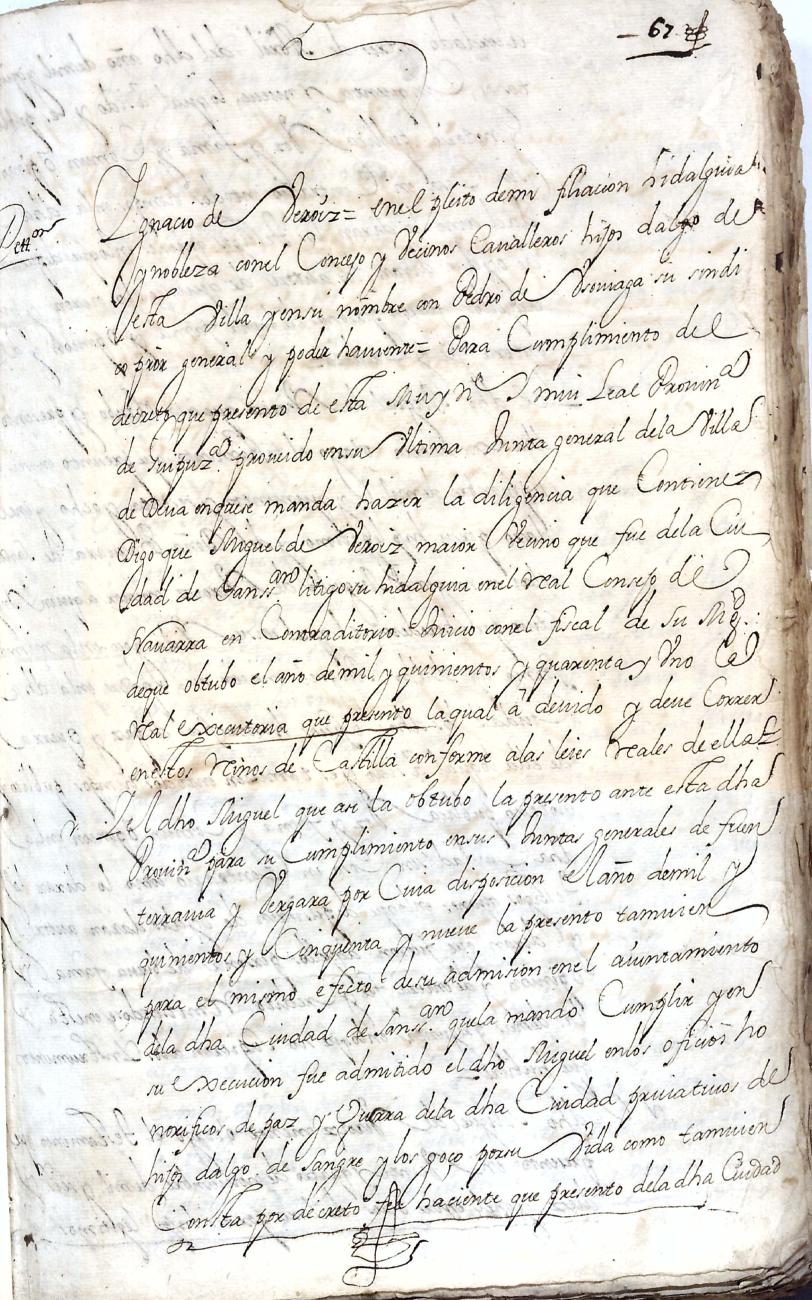 67
Petton
Ignacio de Veroiz = en el pleito de mi filiacion hidalguia
y nobleza con el Concejo y Vecinos Cavalleros hijos dalgo de
esta Villa y en su nombre con Pedro de Usoviaga su sindi
co pror general y poder haviente = Para Cumplimiento del
decreto que presento de esta Muy Ne Y mui Leal Provina
de Guipuza proveido en su Ultima Junta general de la Villa
de Deva en que se manda hazer la diligencia que Contiene
Digo que Miguel de Veroiz maior Vecino que fue de la Ciu
dad de Sanssan litigo su hidalguia en el real Consejo de
Navarra en Contraditorio Juicio con el fiscal de su Mgd
de que obtubo el año de mil y quinientos y quarenta y Uno la
real executoria que presento la qual a devido y deve Correr
en estos reinos de Castilla conforme a las leies reales de ellas
Y el dho Miguel que asi la obtubo la presento ante esta dha
Provina para su Cumplimiento en sus Juntas generales de fuen
terravia y Vergara por Cuia disposicion el año de mil y
quinientos y Cinquenta y nueve la presento tamvien
para el mismo efecto de su admision en el aiuntamiento
de la dha Ciudad de Sanssan que la mando Cumplir y en
su execucion fue admitido el dho Miguel en los oficios ho
norificos de paz y Guerra de la dha Ciudad privativos de
hijos dalgo de sangre y los goço por su Vida como tamvien
Consta por decreto fee haciente que presento de la dha Ciudad